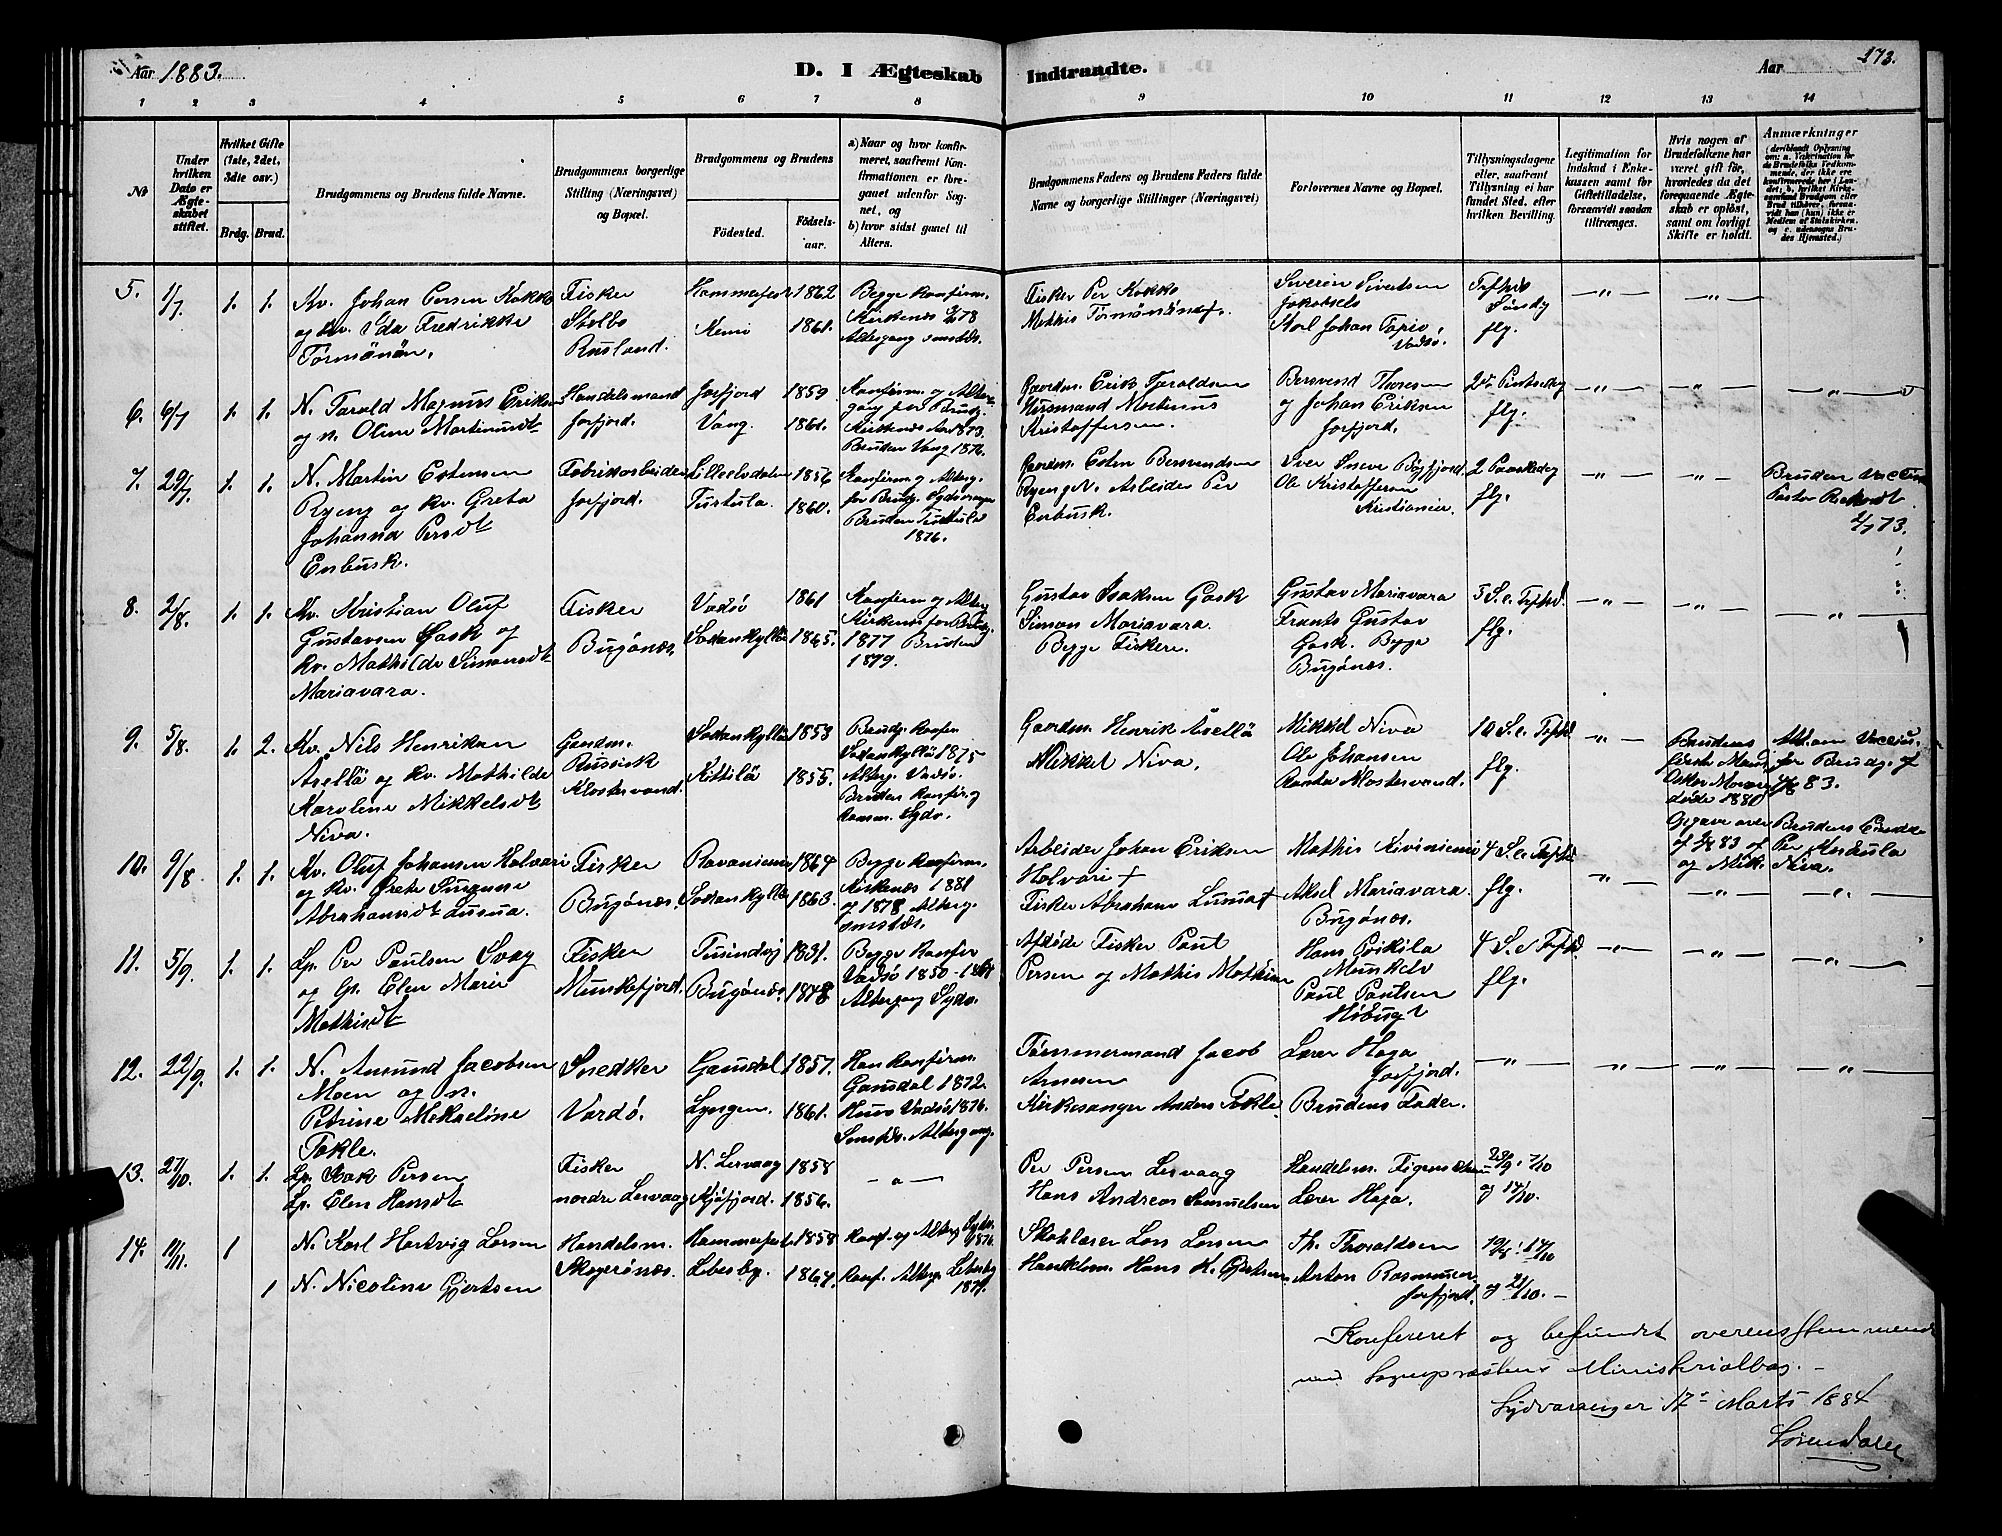 Aar 1883.
D. I Ægteskab Indtraadte.
Aar
173.
1 2 3 4 5 6 7 8 9 10 11 12 13 14
№
Under hvilken Dato er Ægteskabet stiftet.
Hvilket Gifte (1ste, 2det, 3die osv.)
Brdg. Brud.
Brudgommens og Brudens fulde Navne.
Brudgommens borgerlige Stilling (Næringsvei) og Bopæl.
Brudgommens og Brudens
Fødested.
Fødselsaar.
a) Naar og hvor konfirmeret, saafremt Konfirmationen er foregaaet udenfor Sognet, og
b) hvor sidst gaaet til Alters.
Brudgommens Faders og Brudens Faders fulde Navne og borgerlige Stillinger (Næringsvei)
Forlovernes Navne og Bopæl.
Tillysningsdagene eller, saafremt Tillysning ei har fundet Sted, efter hvilken Bevilling.
Legitimation for Indskud i Enkekassen samt for Giftetilladelse, forsaavidt saadan tiltrænges.
Hvis nogen af Brudefolkene har været gift før, hvorledes da det foregaaende Ægteskab er opløst, samt om lovligt Skifte er holdt.
Anmærkninger
5. 1/7 1. 1. Kv. Johan Persen Kokko
og kv. Ida Fredrikke
Tormänän.
Fisker
Stolbo
Rusland.
Hammerfest 1862
Kemi 1861.
Begge konfirm.
Kirkenæs
Altergang smstds.
Fisker Per Kokko
Mathis Tormänän
Severin Sivertsen
Jakobsels
Karl Johan Tapio
Vadsø.
Søndg
flg.
6. 6/7 1. 1. N. Tarald Magnus Eriksen
og n. Oline Martinusdt
Handelsmand
Jarfjord.
Jarfjord 1859
Vang. 1861.
Konfirm. og Altergang for Brudg.
Kirkenæs 1873.
Bruden Vang 1876.
Gaardm. Erik Taraldsen
Husmand Martinus
Kristoffersen.
Bersvend Thoresen
og Johan Eriksen
Jarfjord.
flg.
7. 29/7 1. 1. N. Martin Estensen
Ryeng og kv. Greta
Johanna Persdt
Enbusk.
Fabrikarbeider
Jarfjord.
Lilleelvdalen 1856
Turtula. 1860.
Konfirm. og Alterg.
for Brudg. Sydvaranger
Bruden Turtula
1876.
Gaardm. Esten Bersvendsen
Ryeng N. Arbeider Per
Enbusk.
Iver Bøgfjord
Ole Kristoffersen
Kristianien.
2 Paaskedag
flg.
Bruden Vaccin
73.
8. 2/8 1. 1. Kv. Kristian Oluf
Gustavsen Gask og
kv. Mathilde Simonsdt
Mariavara.
Fisker
Bugønæs.
Vadsø 1861
Sodankylä 1865.
Konfirm og Alterg
Kirkenæs for Brudg.
1877 Bruden
1879.
Gustav Isaksen Gask
Simon Mariavara.
Begge Fiskere.
Gustav Mariavara
Frants Gustav
Gask. Begge
Bugønæs.
3 S. e. Tfhd.
flg.
9. 5/8. 1. 2. Kv. Nils Henriksen
Asellä og kv. Mathilde
Karoline Mikkelsdt
Niva.
Gaardm.
Russisk
Klostervand.
Sodankylä 1853
Kittilä 1855.
Brudg. Konfirm
Sodankylä 1875
Alterg. Vadsø.
Bruden Konfir. og
Komm. Sydv.
Gaardm. Henrik Asellä
Mikkel Niva.
Mikkel Niva
Ole Johansen
Ranta Klostervand.
10 S. e. Tfhd.
flg.
Brudens
første Mand
døde 1880
for Brudg. af
83.
10. 9/8. 1. 1. Kv. Oluf Johansen Holvari
og kv. Grete Susanne
Abrahamsdt Lusua.
Fisker
Bugønæs.
Rovaniemi 1864
Sodankylä 1863.
Begge konfirm.
Kirkenæs 1881
og 1878 Alterg.
smstds.
Arbeider Johan Eriksen
Holvari +
Fisker Abraham Lusua +
Mathis Kiviniemi
Aksel Mariavara.
Bugønæs.
4 S. e. Tfhd.
flg.
11. 5/9. 1. 1. Lp. Per Paulsen Svag
og lp. Elen Marie
Mathisdt
Fisker
Munkefjord.
1831.
Bugønæs. 1848
Begge Konfir
Vadsø 1850 - 1864
Altergang Sydv.
Afdøde Fisker Paul
Persen og Mathis Mathisen
Hans Poikila
Munkelv
Paul Paulsen
Høbugt
4 S. e. Tfhd.
flg.
12. 22/9. 1. 1. N. Amund Jacobsen
Moen og n.
Petrine Mekaeline
Tokle.
Snedker
Vardø.
Gausdal 1857.
Lyngen. 1861.
Han konfirm.
Gausdal 1872.
Hun Vadsø 1876.
Smstds. Altergang.
Tømmermand Jacob
Arnesen
Kirkesanger Anders Tokle.
Lærer Haga
Jarfjord.
Brudens Fader.
13. 27/10. 1. 1. Lp. Isak Persen
Lp. Elen Hansdt
Fisker
nordre Lervaag
N. Lervaag 1858
Kjøfjord. 1856.
Per Persen Lervaag
Hans Andreas Samuelsen
Handelsm. Figenschou
Lærer Haga.
23/9. 7/10
og 14/10.
14. 11/11. 1 N. Karl Hartvig Larsen
1 N. Nicoline Gjertsen
Handelsm.
Skogerønæs.
Hammerfest. 1858
Lebesby. 1864.
Konf. og Alterg. Sydv. 1876.
Konf. Alterg. Lebesby
1879.
Skolelærer Lars Larsen
Handelsm. Hans H. Gjertsen
Th. Thoraldsen
Anton Rasmussen
Jarfjord.
14/10
og 21/10. -
Konfereret og befundet overensstemmende
med Sognepræstens Ministerialbog. -
Sydvaranger 17de Marts 1884